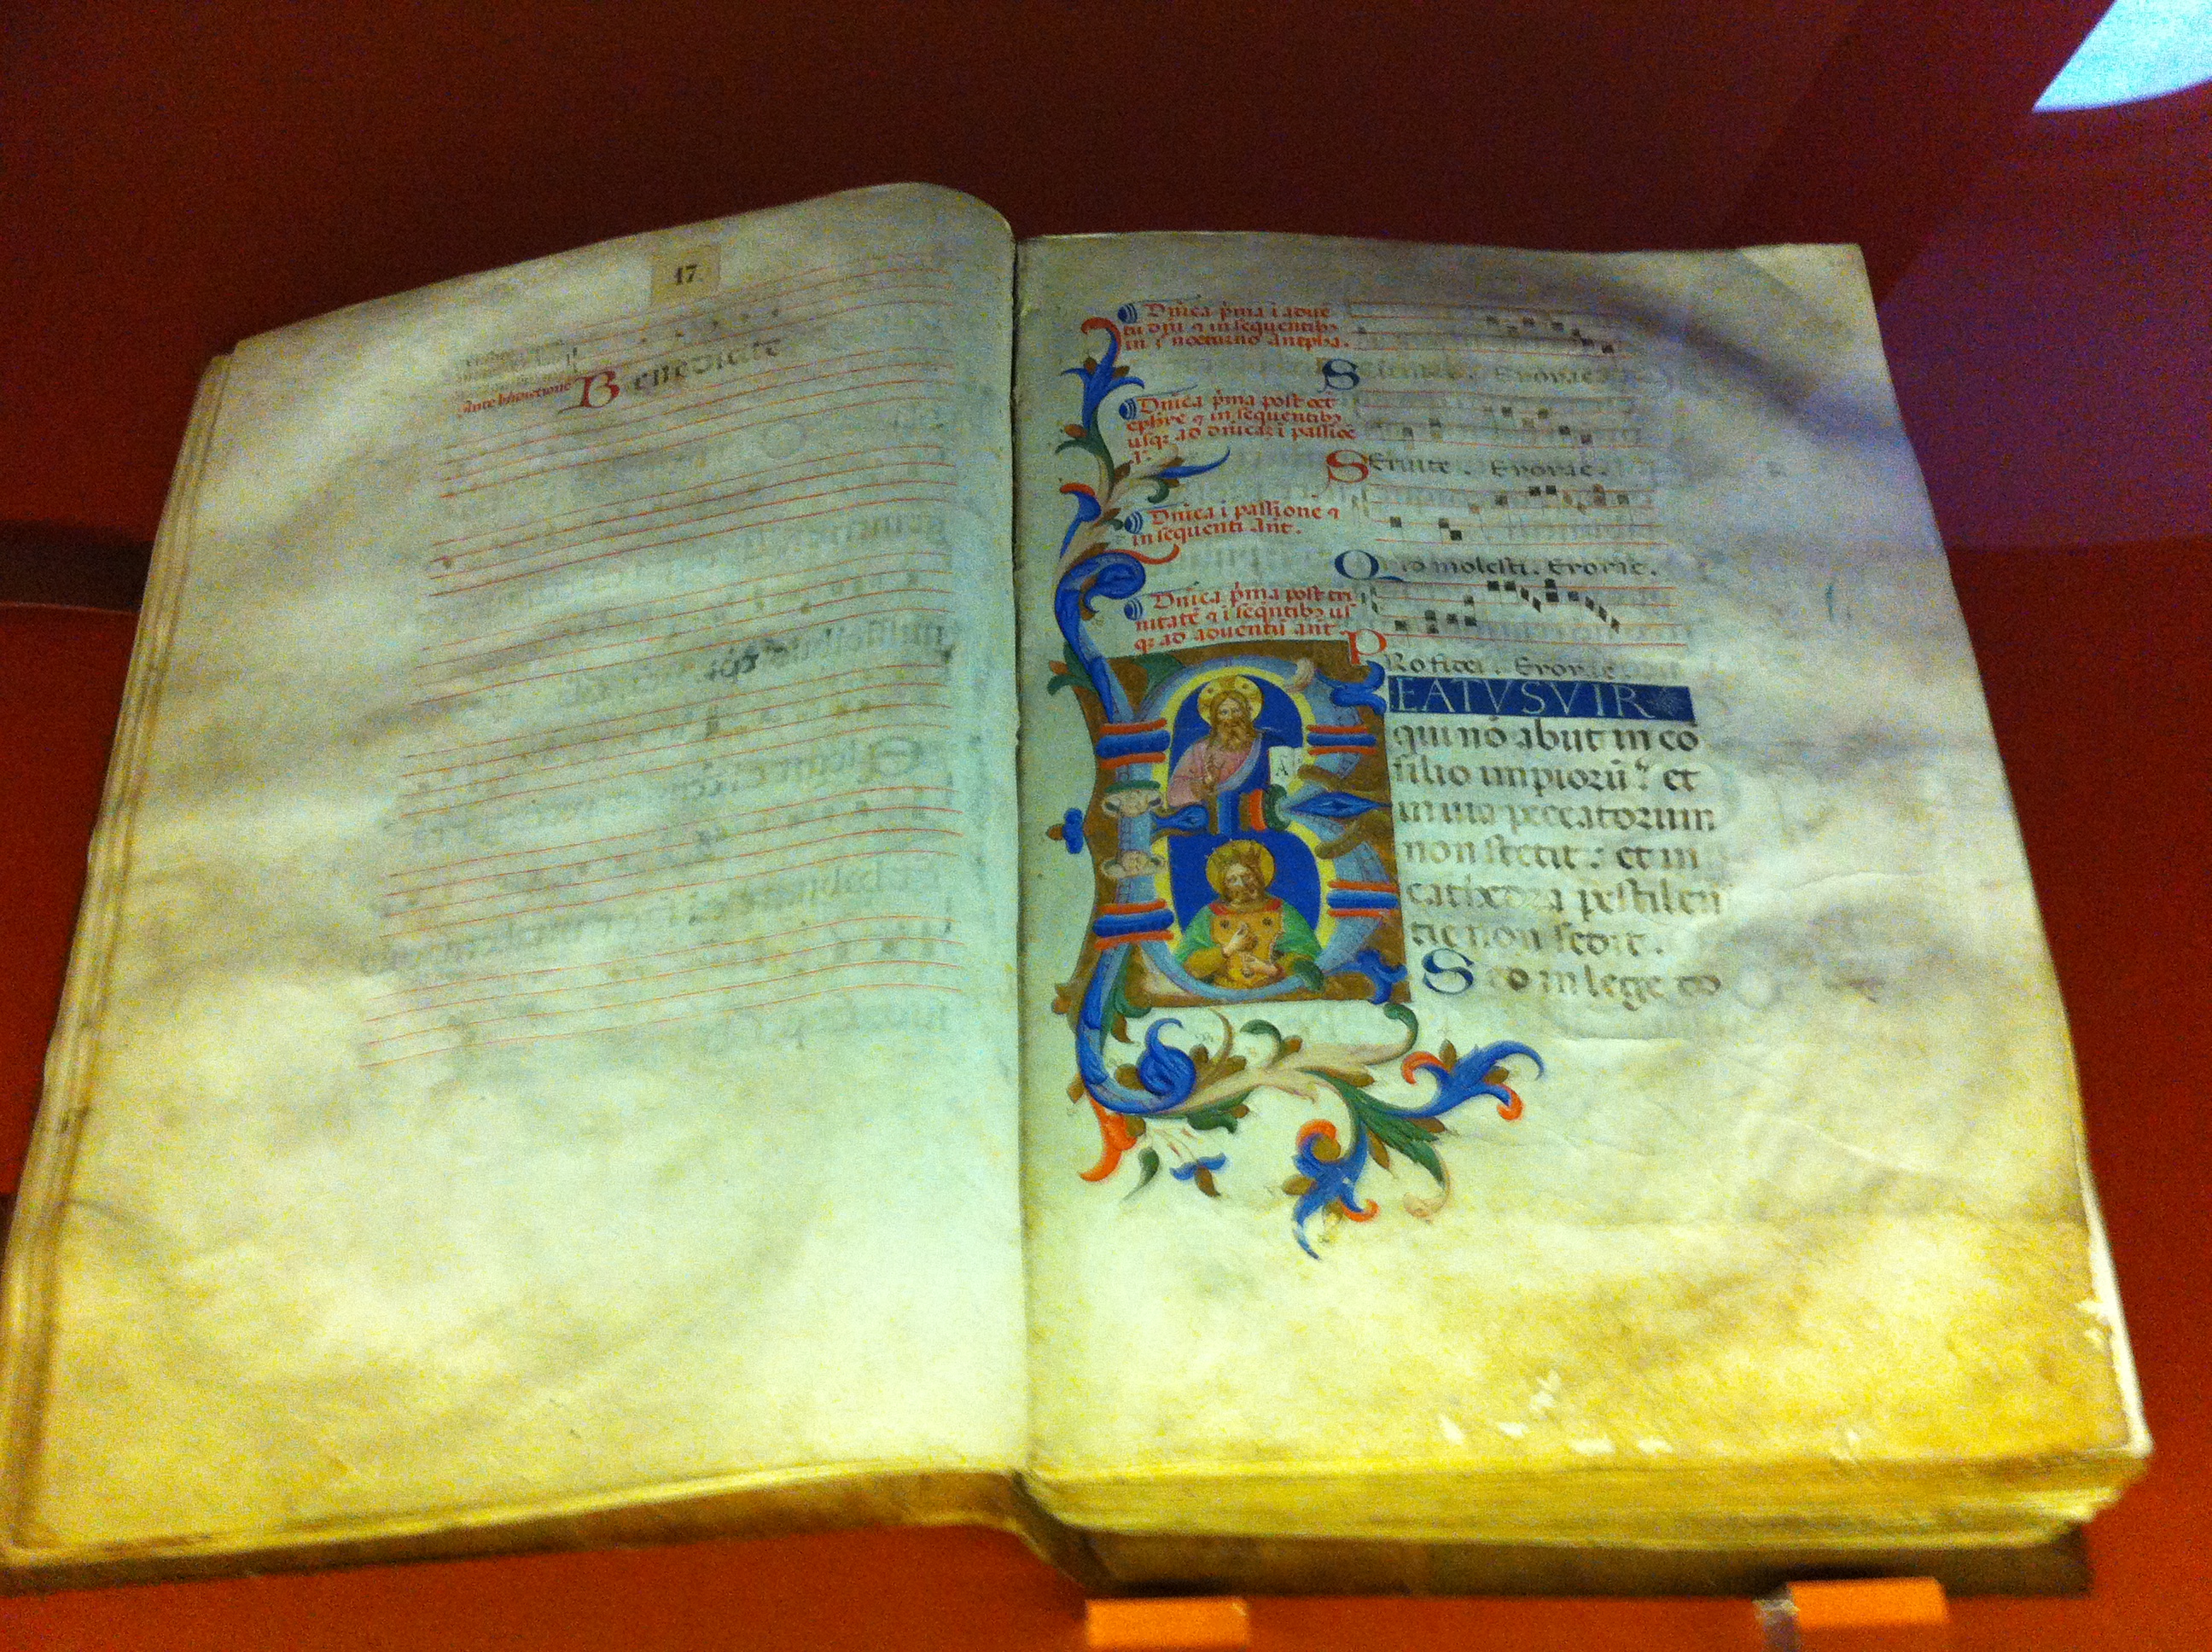 17.
Ante bñdictionē Benedicite
Dñica p̄ma i adue
tu dñi ⁊ in sequentibꝫ
in .i. nocturno antepha.
S Erorae.
Dñica p̄ma post oct
ephie ⁊ in sequentibꝫ
usqꝫ ad dñicaꝫ i passioē
a.
Seruite. Erorae.
Dñica i passione ⁊
in sequenti añt.
Quo molesti. Erorae.
Dñica p̄ma post tri
nitatē ⁊ i sequtibꝫ us
qꝫ ad aduentū añt.
Proficei. Erorae
BEATVS VIR
qui nō abiit in cō
silio impiorū: et
in uia peccatorum
non stetit: et in
cathedra pestilen
tie non sedit.
Sed in lege do